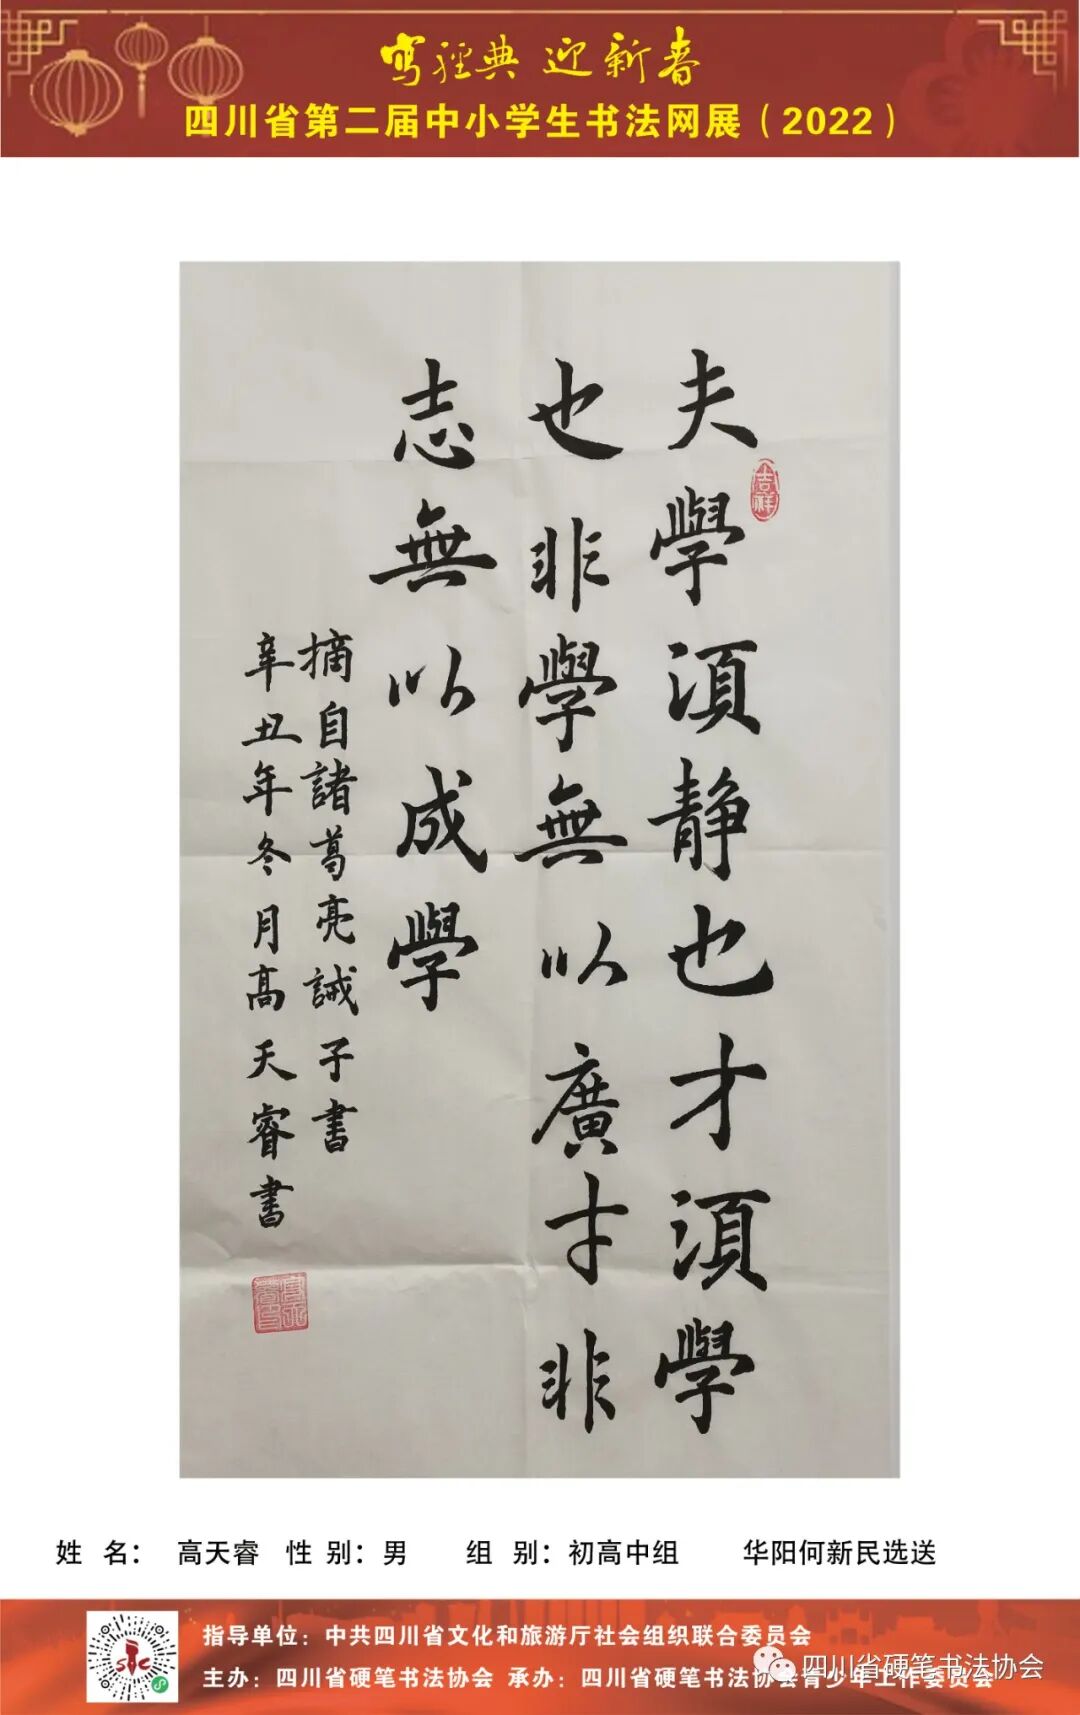 寫經典 迎新春
四川省第二届中小学生书法网展（2022）
夫學須靜也才須學
也非學無以廣才非
志無以成學
摘自諸葛亮誡子書
辛丑年冬月高天睿書
吉祥
姓 名： 高天睿 性 别：男 组 别：初高中组 华阳何新民选送
指导单位：中共四川省文化和旅游厅社会组织联合委员会
主办：四川省硬笔书法协会 承办：四川省硬笔书法协会青少年工作委员会
四川省硬笔书法协会